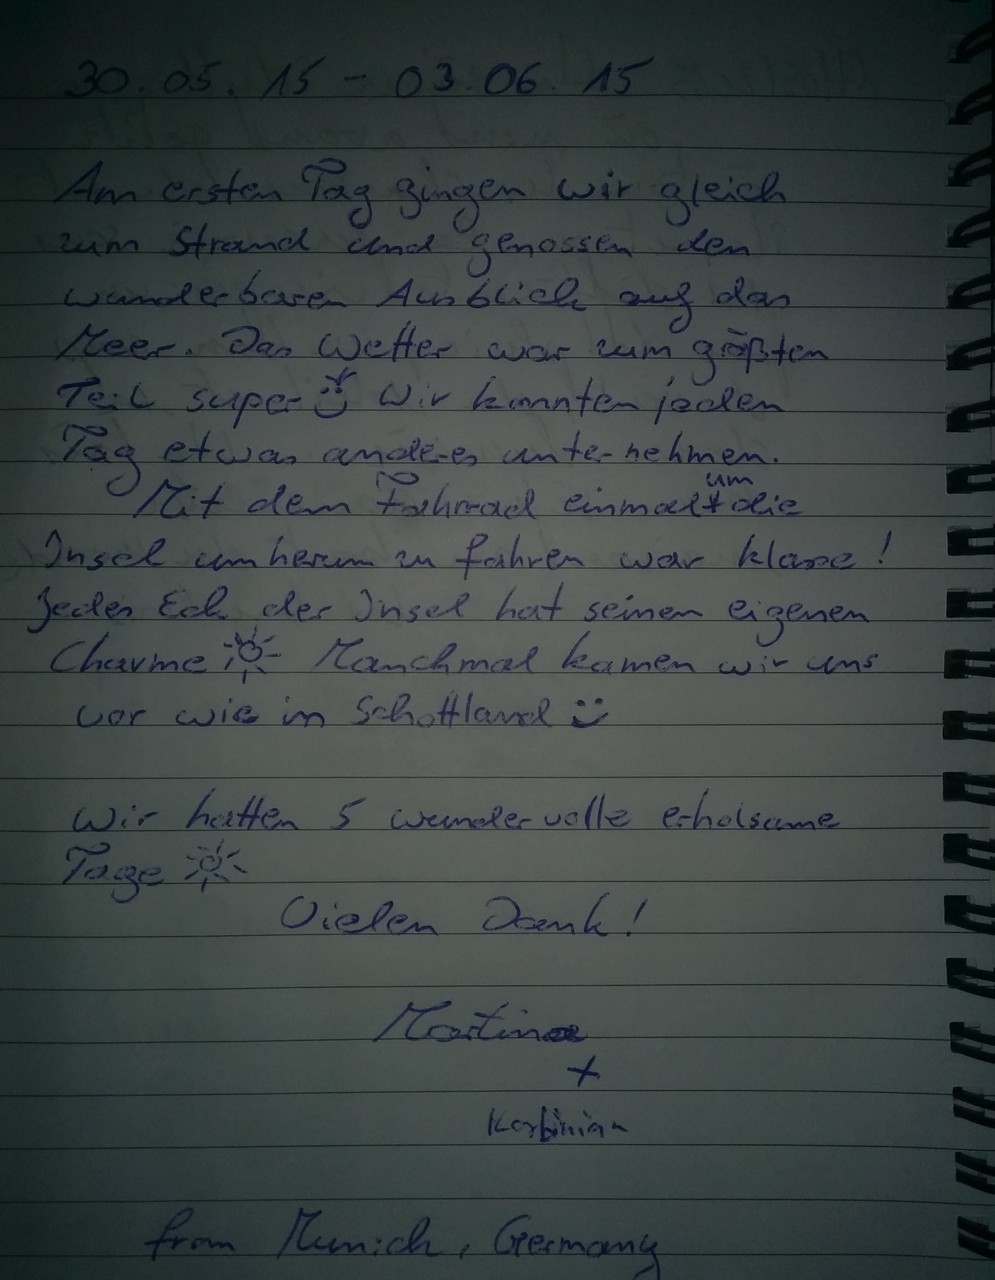 30.05.15 - 03.06.15
Am ersten Tag gingen wir gleich
zum Strand und genossen den
wunderbaren Ausblick auf das
Meer. Das Wetter war zum größten
Teil super Wir konnten jeden
Tag etwas anderes unternehmen.
um
Mit dem Fahrrad einmal die
Insel umherum zu fahren war klasse!
Jedes Eck der Insel hat seinen eigenen
Charme Manchmal kamen wir uns
vor wie in Schottland
Wir hatten 5 wundervolle erholsame
Tage
Vielen Dank!
Martina
+
Korbinian
from Munich, Germany